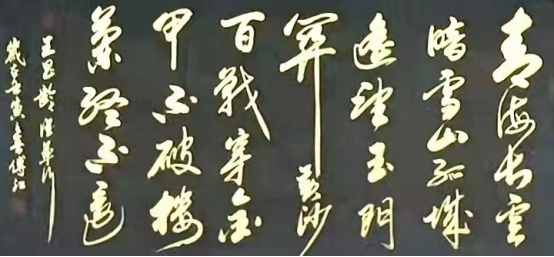 青海長雲
暗雪山孤城
遙望玉門
關黃沙
百戰穿金
甲不破樓
蘭終不還
王昌齡從軍行